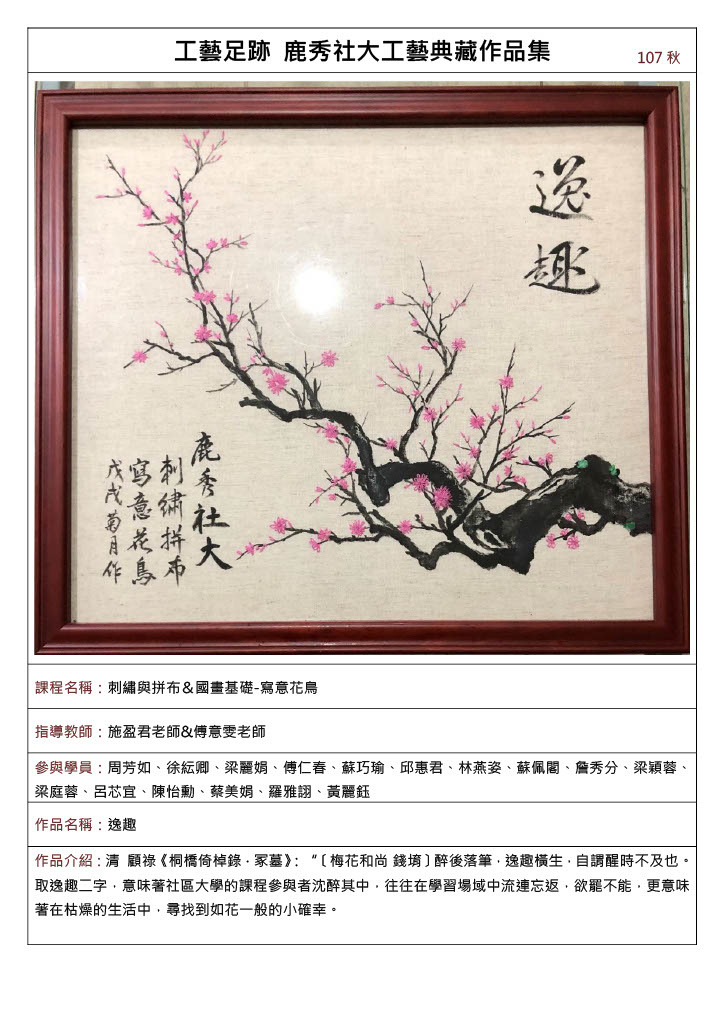 工藝足跡 鹿秀社大工藝典藏作品集
107 秋
逸趣
鹿秀社大
刺繡拼布
寫意花鳥
戊戌菊月作
課程名稱：刺繡與拼布＆國畫基礎-寫意花鳥
指導教師：施盈君老師&傅意雯老師
參與學員：周芳如、徐紜卿、梁麗娟、傅仁春、蘇巧瑜、邱惠君、林燕姿、蘇佩閣、詹秀分、梁穎蓉、
梁庭蓉、呂芯宜、陳怡勳、蔡美娟、羅雅詡、黃麗鈺
作品名稱：逸趣
作品介紹：清 顧祿《桐橋倚棹錄．冢墓》：“〔梅花和尚 錢堉〕醉後落筆，逸趣橫生，自謂醒時不及也。
取逸趣二字，意味著社區大學的課程參與者沈醉其中，往往在學習場域中流連忘返，欲罷不能，更意味
著在枯燥的生活中，尋找到如花一般的小確幸。